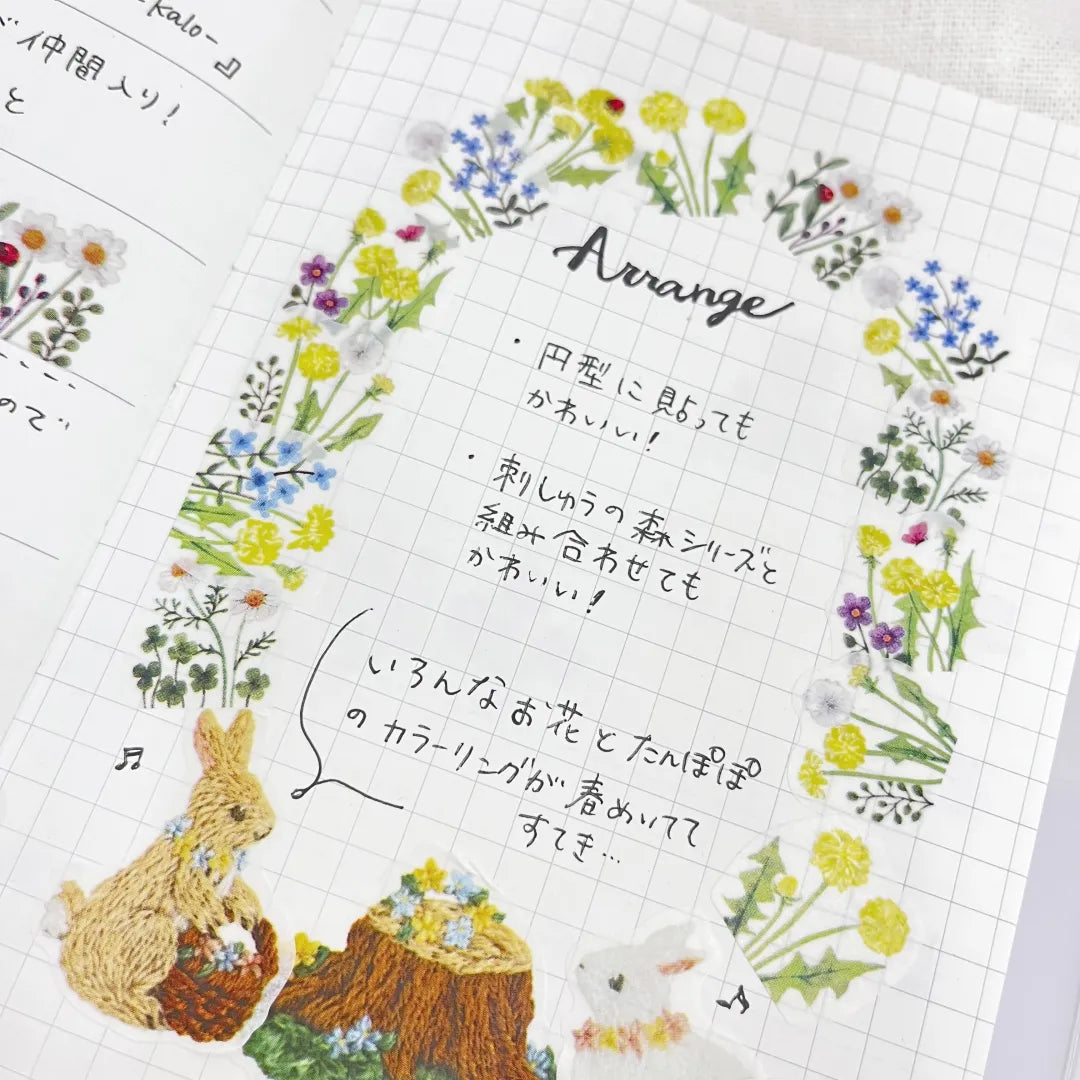 -Kalo-
仲間入り!
と
ので
Arrange
・円型に貼っても
かわいい!
・刺しゅうの森シリーズと
組み合わせても
かわいい!
いろんなお花とたんぽぽ
のカラーリングが春めいてて
すてき…